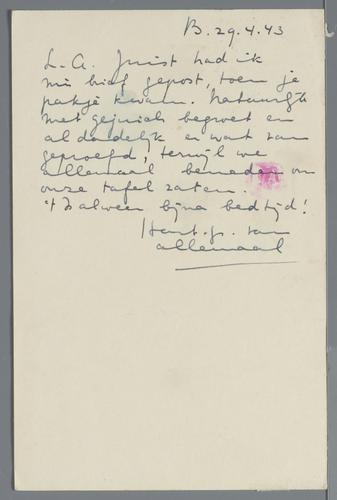 B. 29.4.43
L.A. Juist had ik
min brief gepost, toen je
pakje kwam. Natuurlijk
met gejuich begroet en
al dadelijk er wat van
geproefd, terwijl we
allemaal beneden om
onze tafel zaten.
't Is alweer bijna bedtijd!
Hart. gr. van
allemaal